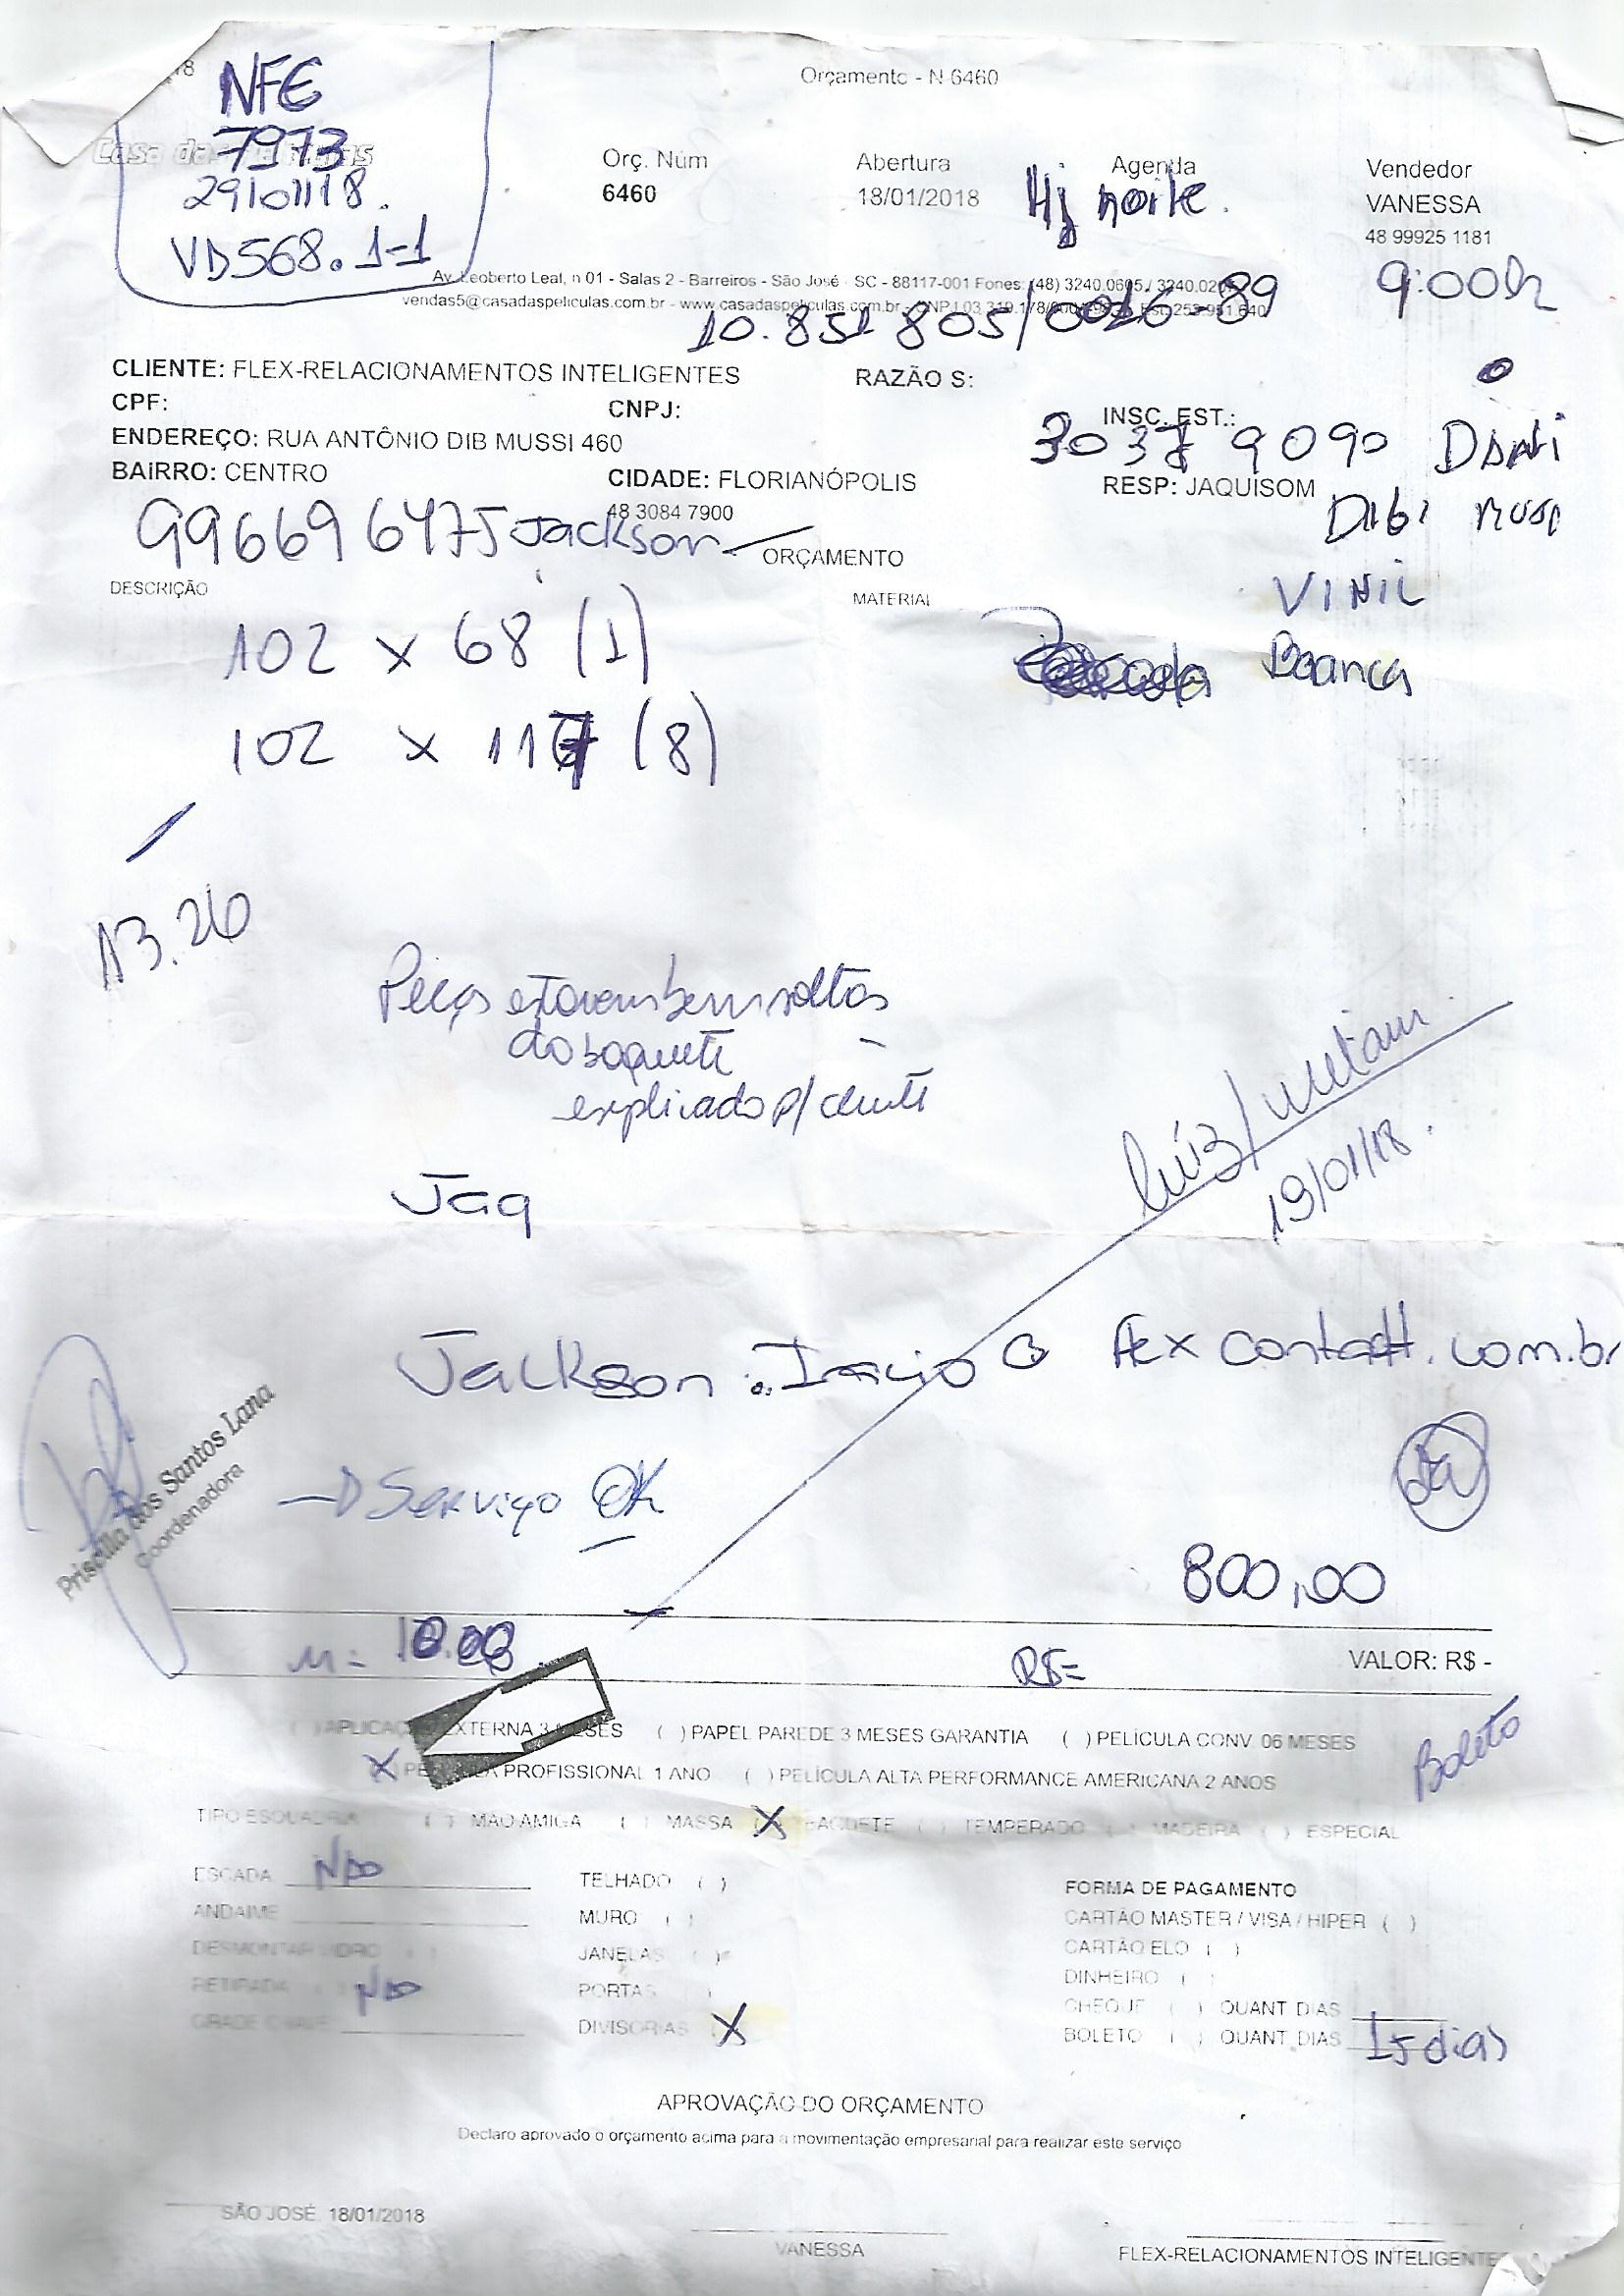 Orçamento - N 6460
NFE
7973
29/01/18.
VD568. 1-1
Casa das
Orç. Núm
6460
Abertura
18/01/2018
Agenda
Hj noite.
Vendedor
VANESSA
48 99925 1181
9:00h
Av. Leoberto Leal, n 01 - Salas 2 - Barreiros - São José SC - 88117-001 Fones: (48) 3240.0605 / 3240.02
vendas5@casadaspeliculas.com.br - www.casadaspeliculas.com.br
10.851 805/0016-89
CLIENTE: FLEX-RELACIONAMENTOS INTELIGENTES
RAZÃO S:
CPF:
CNPJ:
INSC. EST.:
3037 9090
ENDEREÇO: RUA ANTÔNIO DIB MUSSI 460
BAIRRO: CENTRO
CIDADE: FLORIANÓPOLIS
RESP: JAQUISOM
48 3084 7900
996696475 Jackson
ORÇAMENTO
DESCRIÇÃO
MATERIAL
VINIL
102 x 68 (1)
Branca
102 x 117 (8)
13.26
Peças estavam bem soltas
do baquete
explicado p/ cliente
Luiz/
19/01/18.
Jaq
Jackson.Inacio@flexcontact.com.br
Priscilla dos Santos Lana
Coordenadora
Serviço OK
800,00
M =
R$=
VALOR: R$ -
( ) APLICAÇÃO EXTERNA 3 MESES ( ) PAPEL PAREDE 3 MESES GARANTIA ( ) PELÍCULA CONV 06 MESES
X PELÍCULA PROFISSIONAL 1 ANO ( ) PELÍCULA ALTA PERFORMANCE AMERICANA 2 ANOS
Boleto
TIPO ESQUADRIA ( ) MÃO AMIGA ( ) MASSA (X) BAQUETE ( ) TEMPERADO ( ) MADEIRA ( ) ESPECIAL
ESCADA NÃO
TELHADO ( )
FORMA DE PAGAMENTO
ANDAIME
MURO ( )
CARTÃO MASTER / VISA / HIPER ( )
DESMONTAR VIDRO ( )
JANELAS ( )
CARTÃO ELO ( )
RETIRADA ( ) NÃO
PORTAS ( )
DINHEIRO ( )
CHEQUE ( ) QUANT DIAS
DIVISORIAS X
BOLETO ( ) QUANT DIAS 15 dias
APROVAÇÃO DO ORÇAMENTO
Declaro aprovado o orçamento acima para a movimentação empresarial para realizar este serviço
SÃO JOSÉ, 18/01/2018
VANESSA
FLEX-RELACIONAMENTOS INTELIGENTE